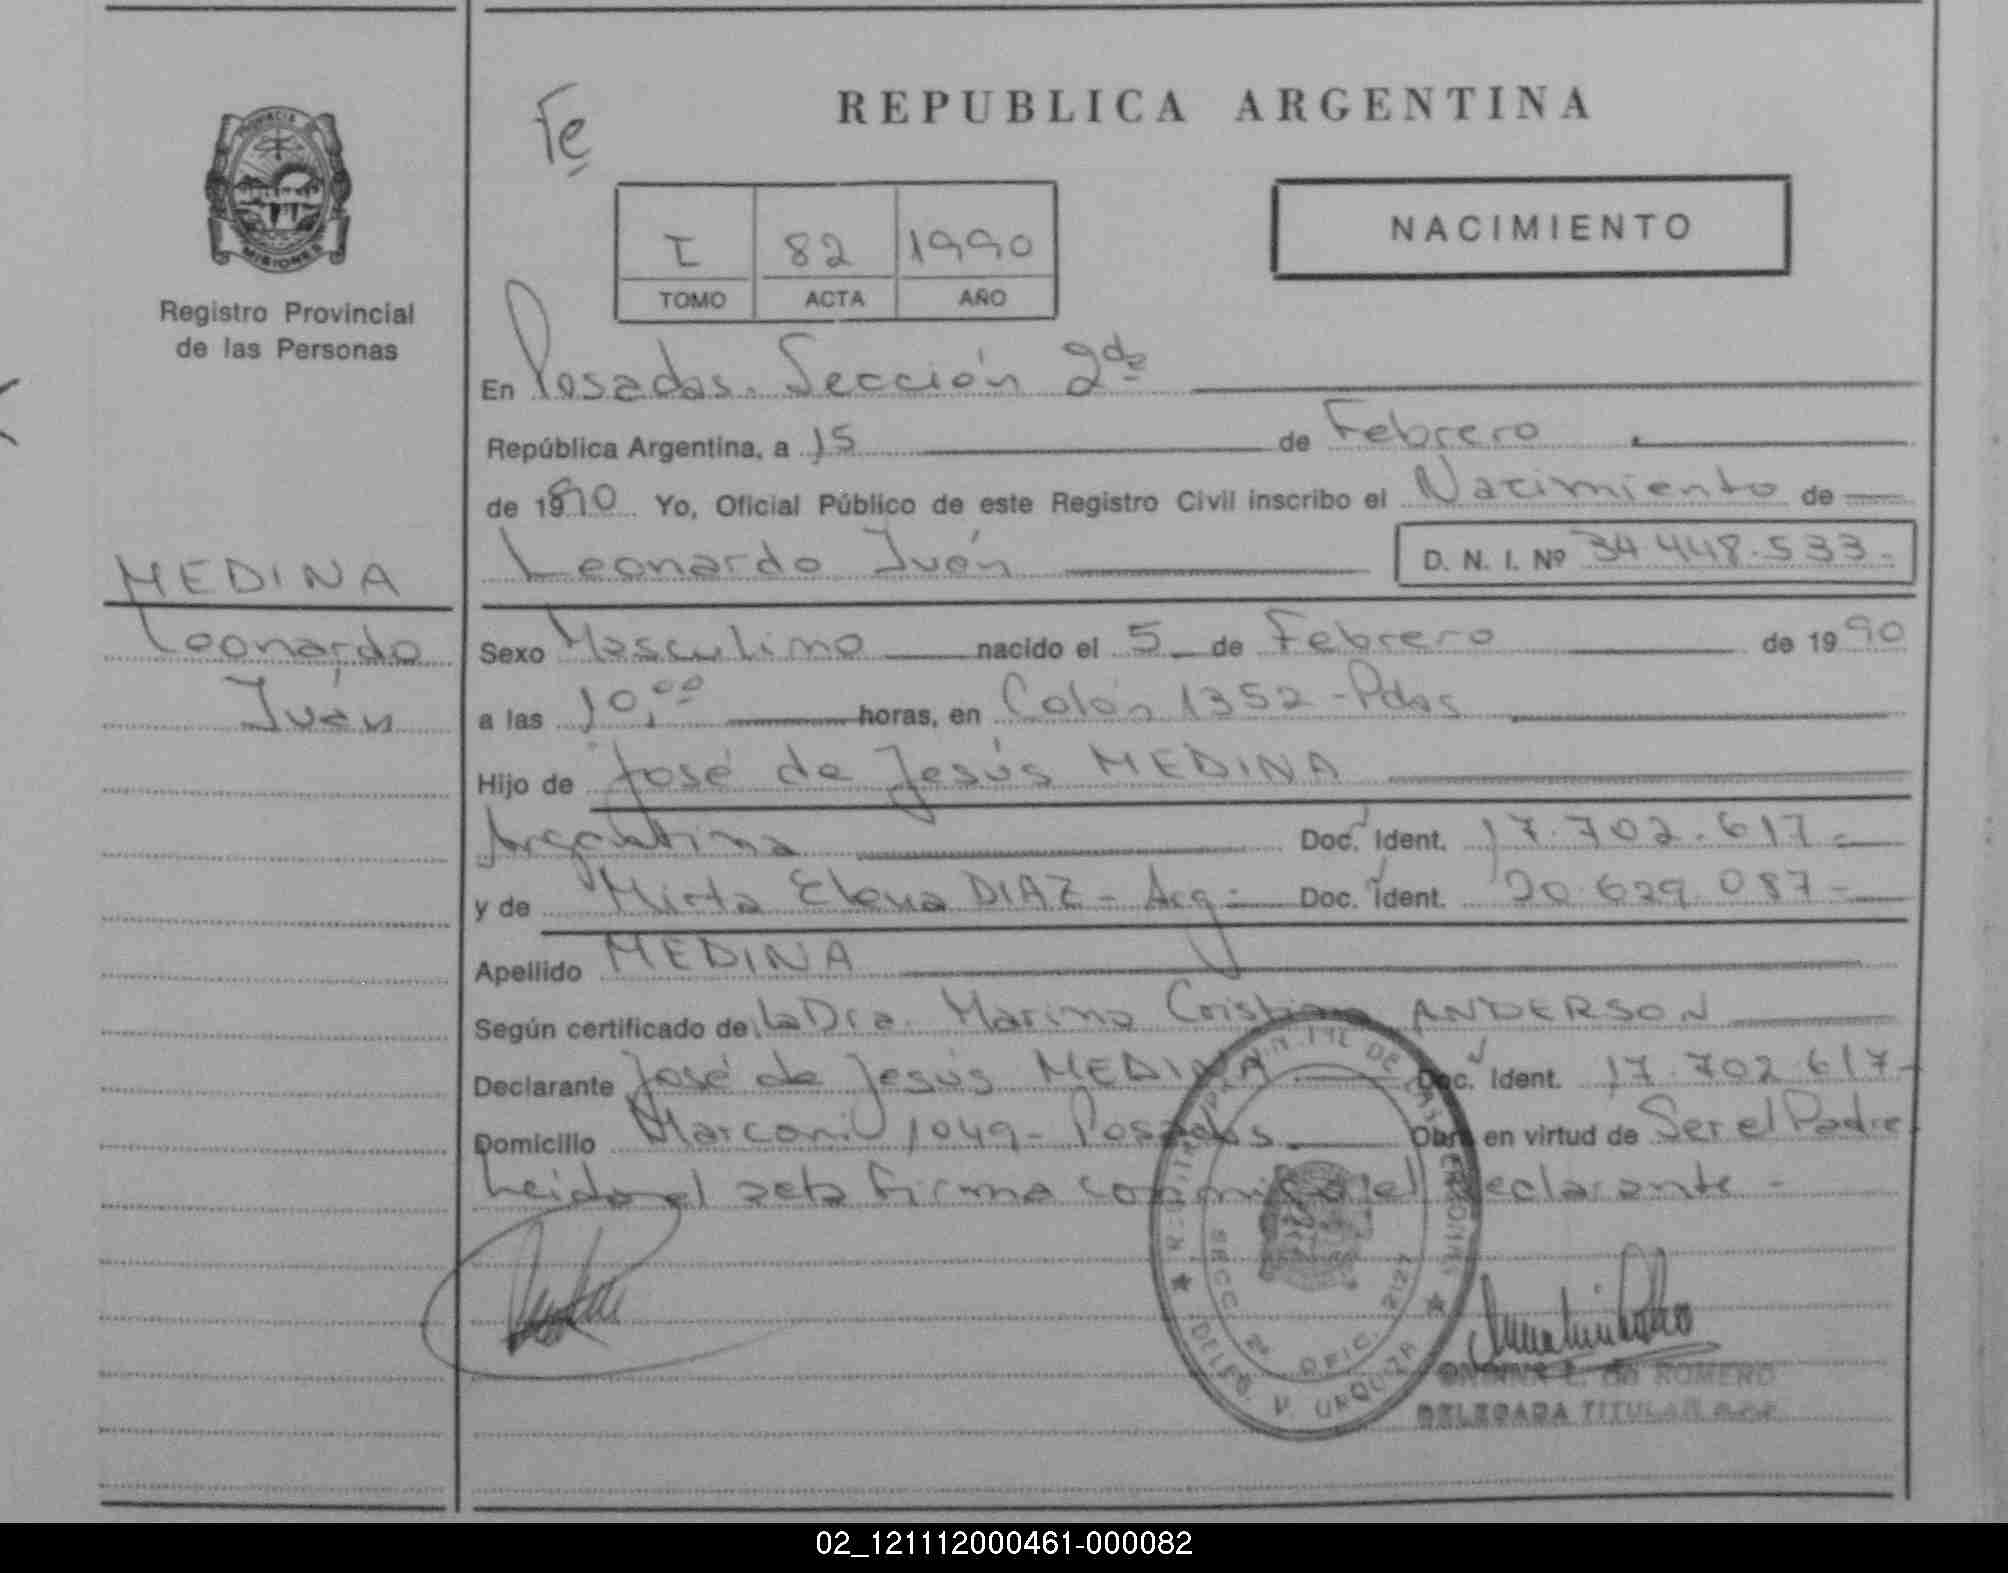 PROVINCIA DE
MISIONES
Registro Provincial
de las Personas
MEDINA
Leonardo
Iván
Fe
REPUBLICA ARGENTINA
I 82 1990
TOMO ACTA AÑO
NACIMIENTO
En Posadas. Sección 2da
República Argentina, a 15 de Febrero
de 1990 Yo, Oficial Público de este Registro Civil inscribo el Nacimiento de
Leonardo Iván D. N. I. Nº 34.448.533.-
Sexo Masculino nacido el 5 de Febrero de 1990
a las 10,00 horas, en Colón 1352 - Pdas
Hijo de José de Jesús MEDINA
Argentina Doc. Ident. 17.702.617-
y de Mirta Elena DIAZ - Arg. Doc. Ident. 20.629.087-
Apellido MEDINA
Según certificado de la Dra. Marina Cristina ANDERSON
Declarante José de Jesús MEDINA Doc. Ident. 17.702.617-
Domicilio Marconi 1049 - Posadas Obra en virtud de Ser el Padre
Leida el acta firma conmigo el declarante -
SECC. 2ª OFIC. 2127
DELEG. V. URQUIZA
de ROMERO
DELEGADA TITULAR
02_121112000461-000082